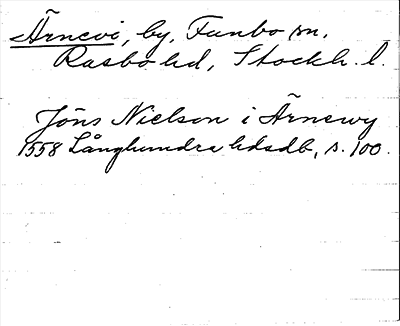 Ärnevi, by, Funbo sn,
Rasbo hd, Stockh. l.
Jöns Nielson i Ärnewy
1558 Långhundra hdsdb, s. 100.